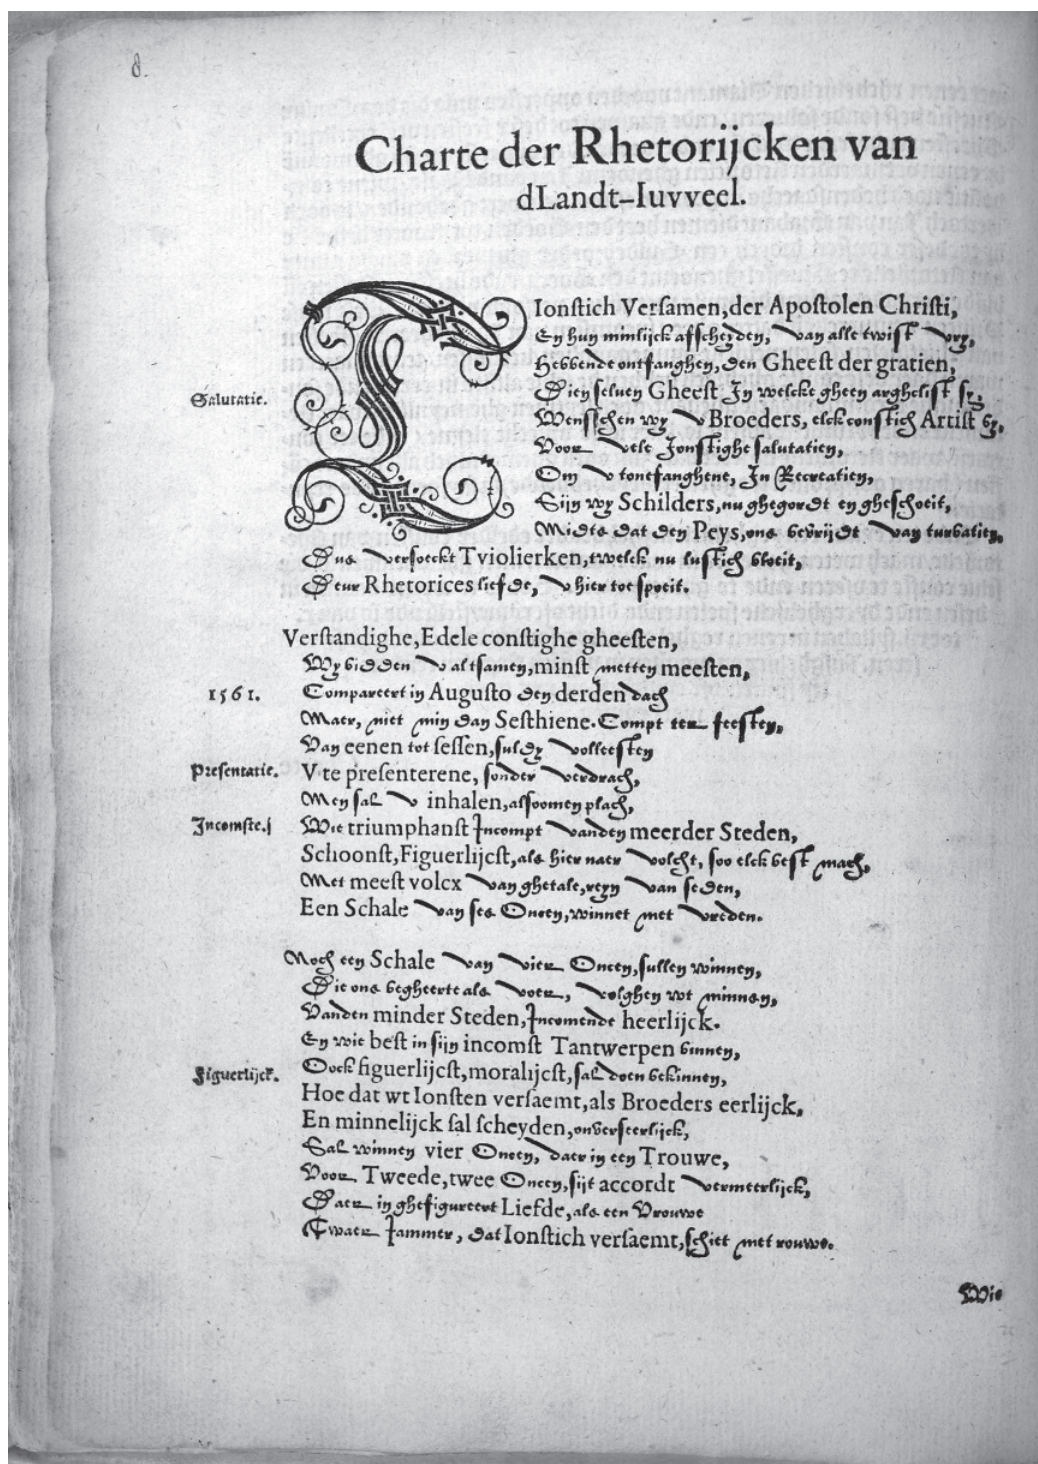 8.
Charte der Rhetorijcken van
dLandt-Iuvveel.
Ionstich Versamen, der Apostolen Christi,
En hun minlijck affscheyden, van alle twist vry,
Hebbende ontfanghen, den Gheest der gratien,
Dien seluen Gheest In welcke gheen arghelist sy,
Salutatie.
Wensschen wy v Broeders, elck constich Artist by,
Voor vele Jonstighe salutatien,
Om v tontfanghene, In Recreatien,
Sijn wy Schilders, nu ghegordt en gheschoeit,
Midts dat den Peys, ons bevrijdt van turbatien,
Dus versoeckt Tviolierken, twelck nu lustich bloeit,
Deur Rhetorices liefde, v hier toe spoeit.
Verstandighe, Edele constighe gheesten,
Wy bidden v altsamen, minst metten meesten,
1561. Compareert in Augusto den derden dach
Maer, niet min dan Sesthiene. Compt ter feesten,
Van eenen tot sessen, suldy volleesten
Presentatie. V te presenterene, sonder verdrach,
Men sal v inhalen, alsoomen plach,
Incomste. Wie triumphanst Incompt vanden meerder Steden,
Schoonst, Figuerlijcst, als hier naer volcht, soo elck best mach,
Met meest volcx van ghetale, reyn van seden,
Een Schale van ses Oncen, winnet met vreden.
Noch een Schale van vier Oncen, sullen winnen,
Die ons begheerte als voer, volghen wt minnen,
Vanden minder Steden, Incomende heerlijck.
En wie best in sijn incomst Tantwerpen binnen,
Figuerlijck. Oock figuerlijcst, moralijcst, sal doen bekinnen,
Hoe dat wt Ionsten versaemt, als Broeders eerlijck,
En minnelijck sal scheyden, onverseerlijck,
Sal winnen vier Oncen, daer in een Trouwe,
Voor Tweede, twee Oncen, sijt accordt vermeerlijck,
Daer in ghefigureert Liefde, als een Vrouwe
Twaer Jammer, dat Ionstich versaemt, schiet met rouwe.
Wie